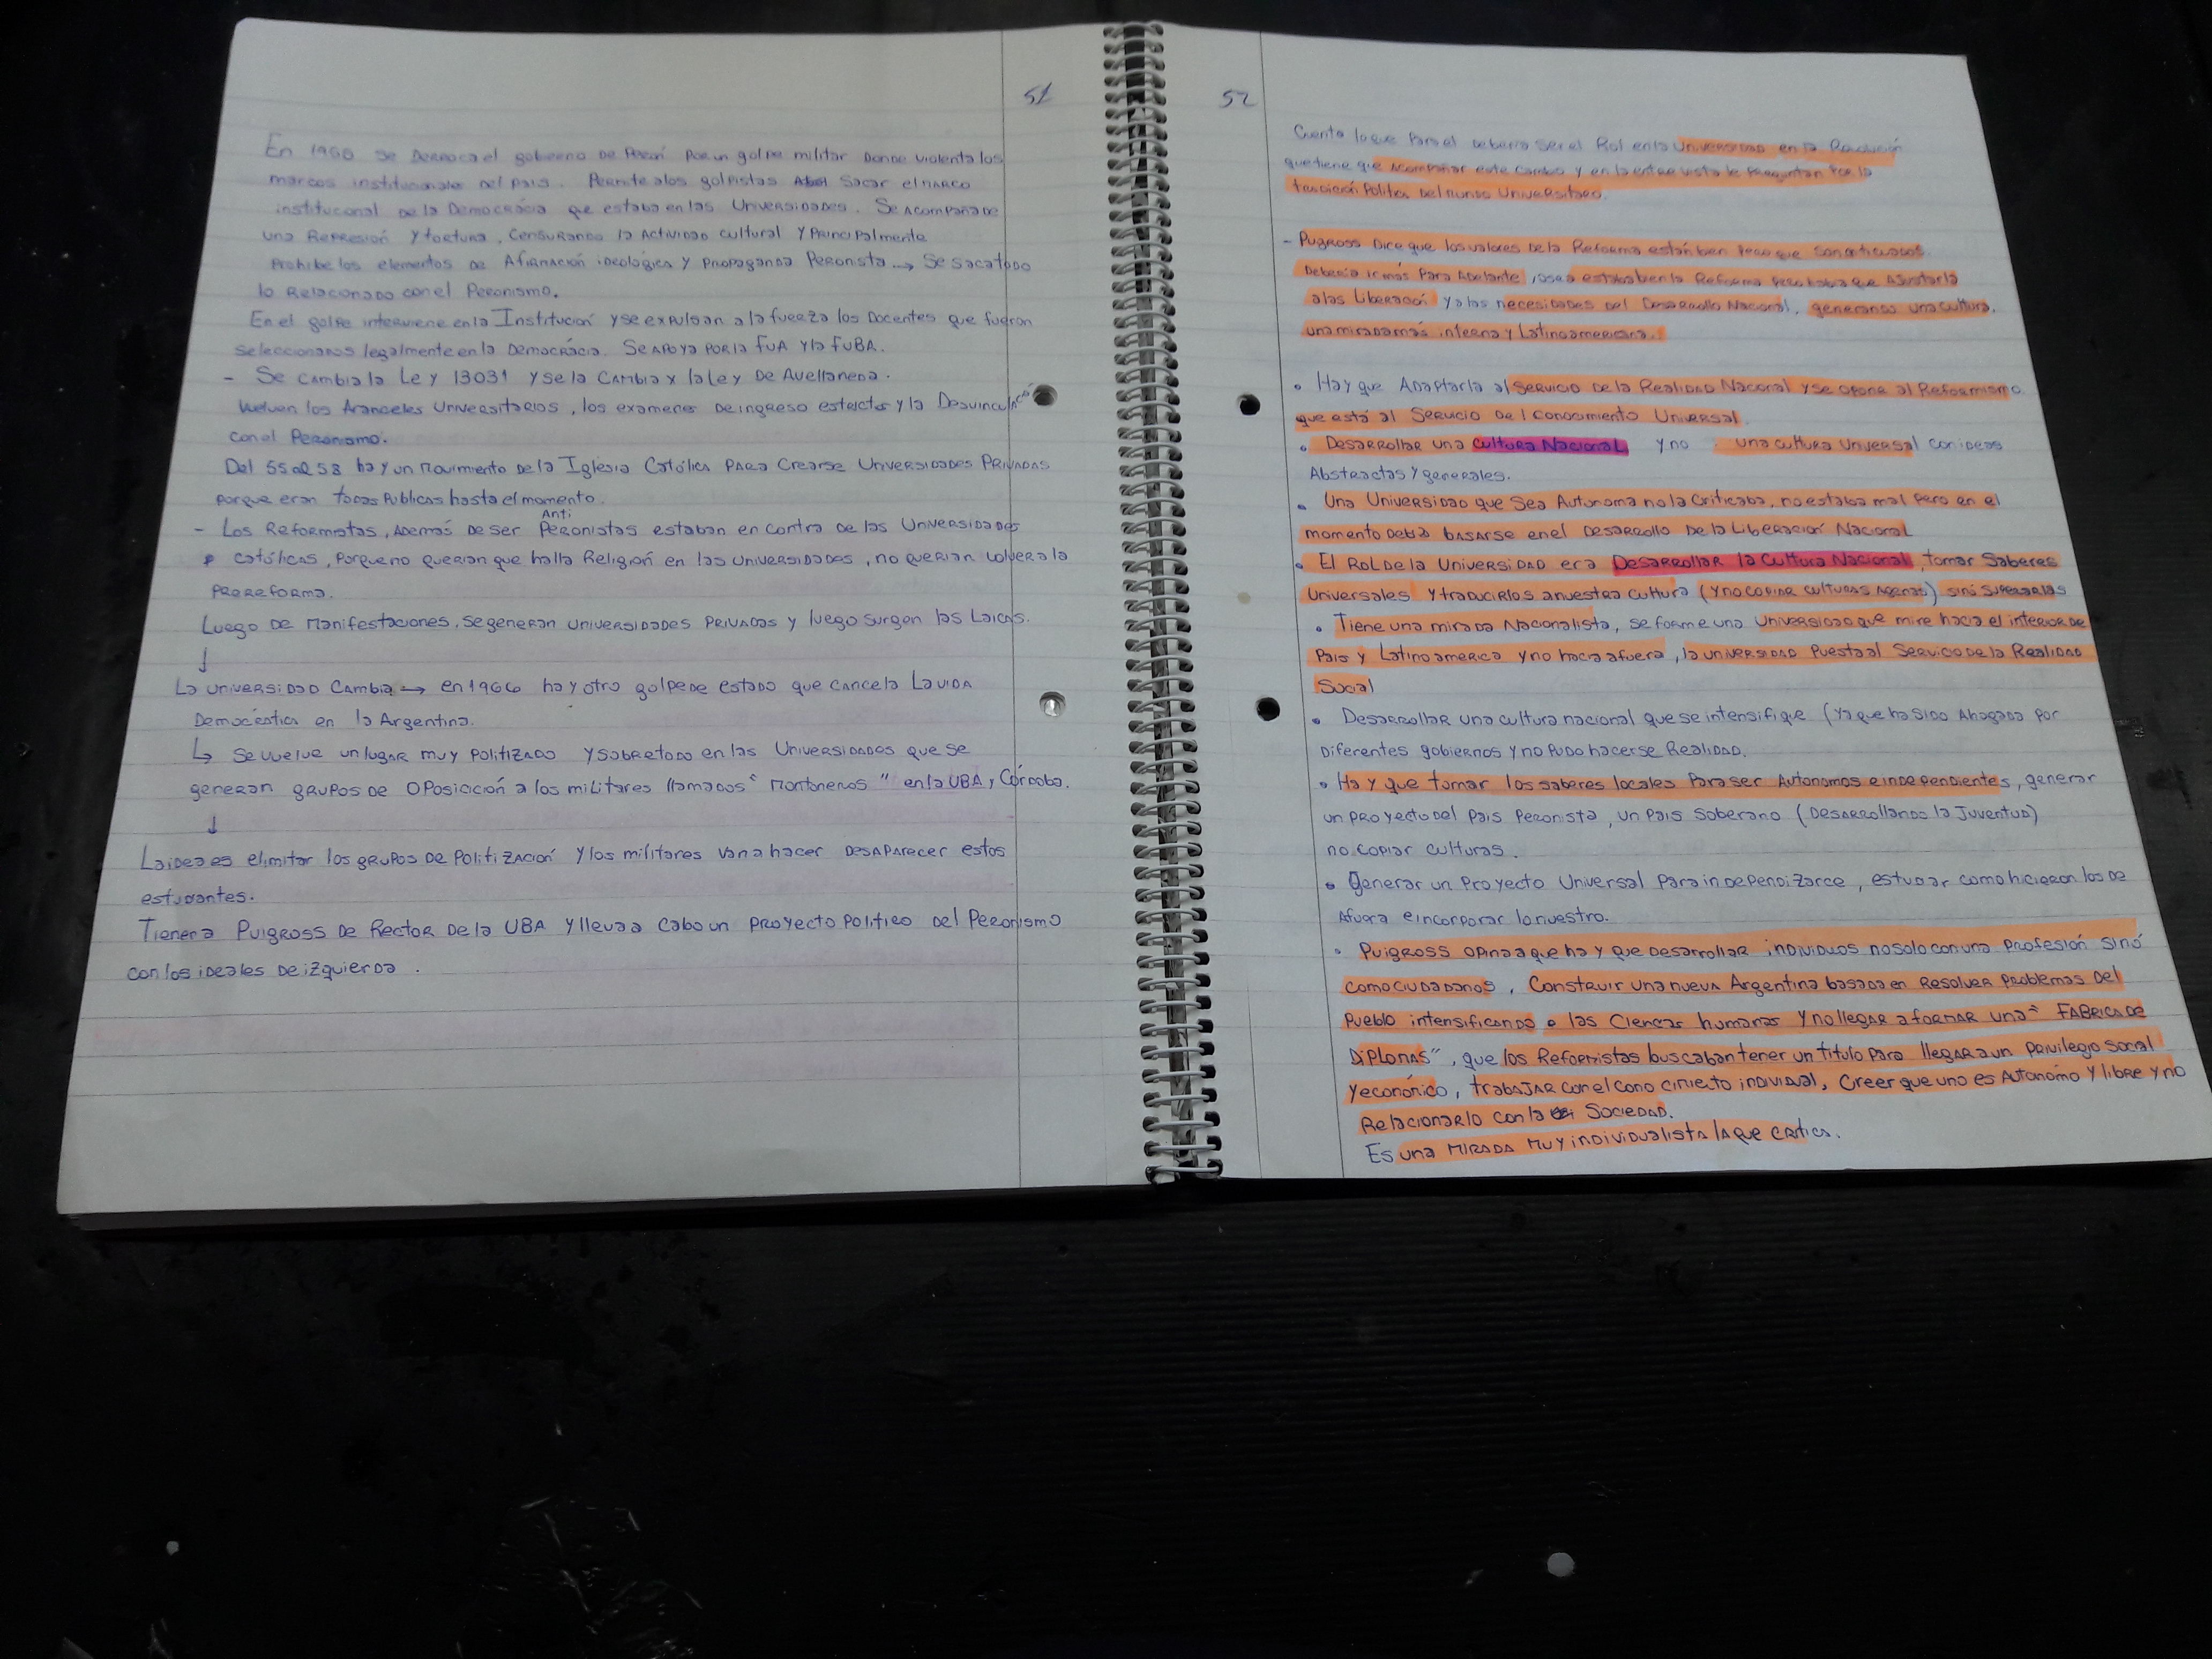 51
En 1955 se Derroca el gobierno de Perón por un golpe militar donde violenta los
marcos institucionales del país. Permite a los golpistas sacar el marco
institucional de la Democrácia que estaba en las Universidades. Se acompaña de
una Represión y tortura, Censurando la Actividad cultural y Principalmente
Prohibe los elementos de Afirmación ideológica y propaganda Peronista → Se saca todo
lo Relacionado con el Peronismo.
En el golpe interviene en la Institución y se expulsan a la fuerza los Docentes que fueron
seleccionados legalmente en la Democrácia. Se apoya por la FUA y la FUBA.
- Se cambia la Ley 13031 y se la Cambia x la ley de Avellaneda.
Vuelven los Aranceles Universitarios, los examenes de ingreso estrictos y la Desvinculación
con el Peronismo.
Del 55 al 58 hay un movimiento de la Iglesia Católica para Crearse Universidades Privadas
porque eran todas Publicas hasta el momento.
- Los Reformistas, además de ser Anti Peronistas estaban en contra de las Universidades
católicas, porque no querian que halla Religión en las universidades, no querian volver a la
prereforma.
Luego de manifestaciones, se generan universidades privadas y luego surgen las Laicas.
↓
La universidad Cambia → en 1966 hay otro golpe de estado que cancela la vida
Democrática en la Argentina.
↳ se vuelve un lugar muy politizado y sobretodo en las Universidades que se
generan grupos de oposicición a los militares llamados "Montoneros" en la UBA y Córdoba.
↓
La idea es elimitar los grupos de politización y los militares van a hacer desaparecer estos
estudiantes.
Tienen a Puigross de Rector de la UBA y lleva a cabo un proyecto político del Peronismo
con los ideales de izquierda.
52
Cuenta lo que para el deberia ser el Rol en la Universidad en la Revolución
que tiene que acompañar este cambio y en la entrevista le preguntan por la
tradición Política del mundo Universitario.
- Pugross Dice que los valores de la Reforma están bien pero que son anticuados.
Debería ir más para adelante, osea estaba bien la Reforma pero habia que Ajustarla
a las Liberación y a las necesidades del Desarrollo Nacional, generando una cultura,
una mirada más interna y Latinoamericana.
• Hay que Adaptarla al Servicio de la Realidad Nacional y se opone al Reformismo
que está al Servicio del Conocimiento Universal.
• Desarrollar una Cultura Nacional y no una cultura Universal con ideas
Abstractas y generales.
• Una Universidad que sea Autonoma no la criticaba, no estaba mal pero en el
momento debia basarse en el Desarrollo de la Liberación Nacional
• El Rol de la Universidad era Desarrollar la Cultura Nacional, tomar Saberes
Universales y traducirlos a nuestra cultura (y no copiar culturas Agenas) sinó superarlas
• Tiene una mirada Nacionalista, se forme una Universidad que mire hacia el interior de
Pais y Latinoamerica y no hacia afuera, la universidad puesta al Servicio de la Realidad
Social
• Desarrollar una cultura nacional que se intensifique (ya que ha sido Ahogada por
Diferentes gobiernos y no pudo hacerse Realidad.
• Hay que tomar los saberes locales para ser Autonomos e independientes, generar
un proyecto del Pais Peronista, un Pais Soberano (Desarrollando la Juventud)
no copiar culturas.
• Generar un proyecto Universal para independizarce, estudiar como hicieron los de
Afuera e incorporar lo nuestro.
• Puigross opinaa que hay que desarrollar individuos no solo con una profesión sinó
como ciudadanos, Construir una nueva Argentina basada en Resolver problemas del
Pueblo intensificando las Ciencas humanas y no llegar a formar una "Fabrica de
Diplomas", que los Reformistas buscaban tener un titulo para llegar a un privilegio social
y económico, trabajar con el conocimiento individual, Creer que uno es Autonomo y libre y no
Relacionarlo con la Sociedad.
Es una mirada muy individualista la que critica.